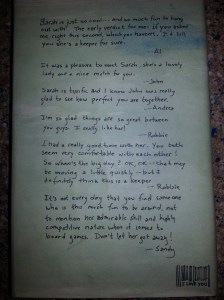 Sarah is just so cool... and so much fun to hang
out with! The early verdict for me: if you asked
me right this second, which you haven't, I'd tell
you she's a keeper for sure.
—Al
It was a pleasure to meet Sarah, she's a lovely
lady and a nice match for you.
—John
Sarah is terrific and I know John was really
glad to see how perfect you are together.
—Andrea
I'm so glad things are so great between
you guys. I really like her!
—Robbie
I had a really good time with her. You both
seem very comfortable with each other!
So when's the big day? OK, OK—that may
be moving a little quickly—but I
definitely think she is a keeper.
—Robbin
It's not every day that you find someone
who is this much fun to be around, not
to mention her admirable skill and highly
competitive nature when it comes to
board games. Don't let her get away!
—Sandy